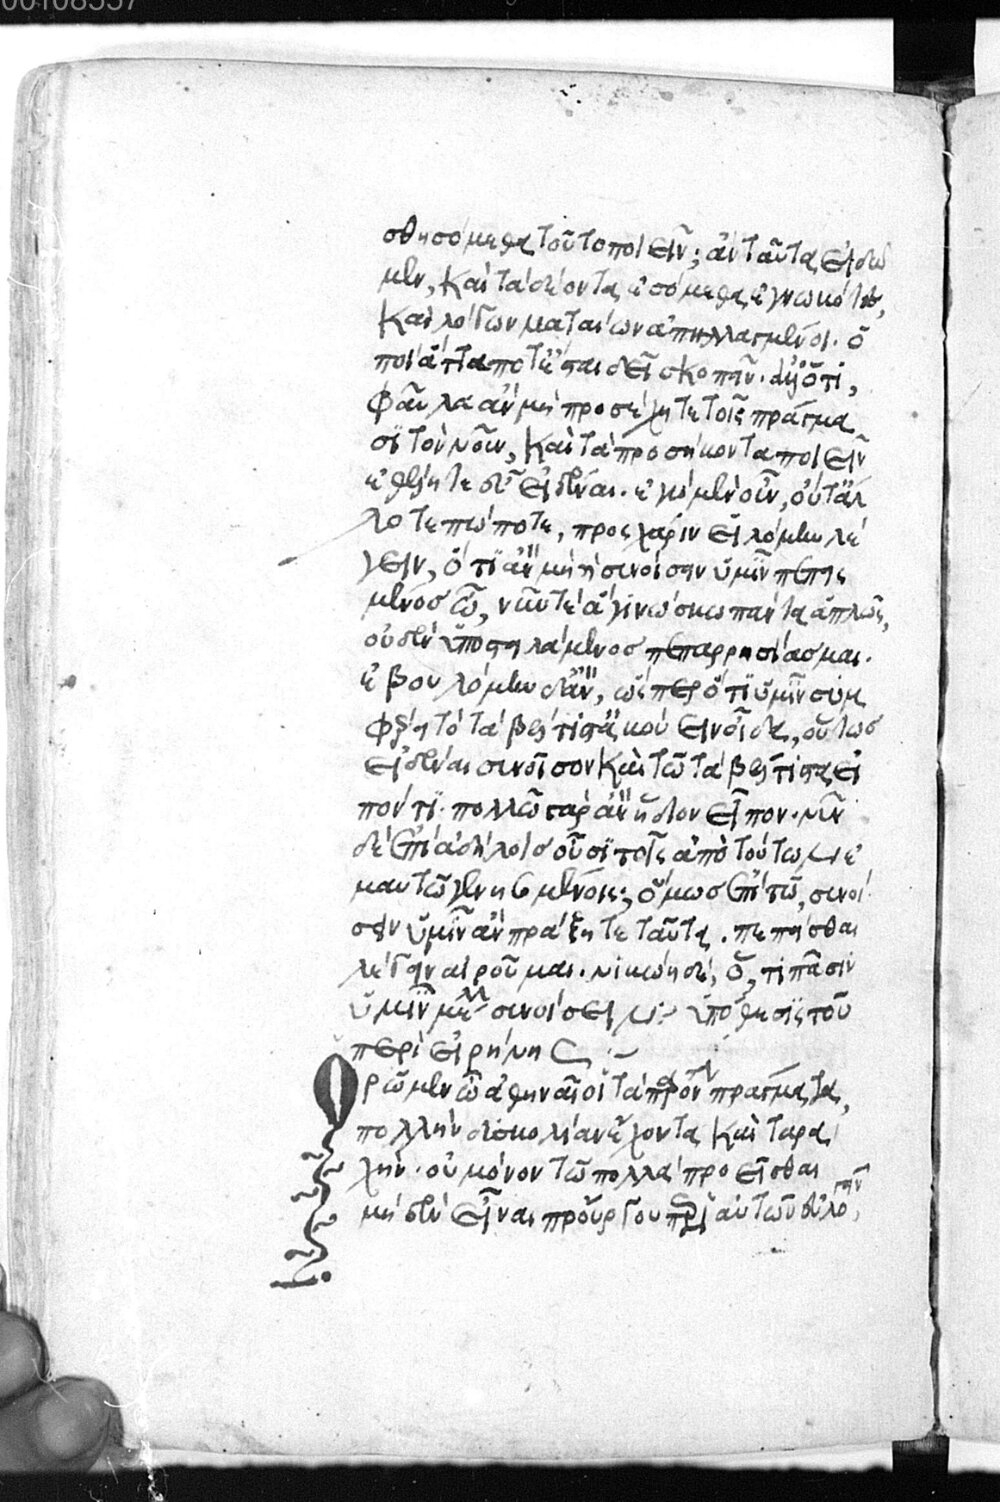 00108557
σθησόμεθα τοῦτο ποιεῖν; ἂν ταῦτα εἰδῶ
μεν, καὶ τὰ δέοντα ἐσόμεθα ἐγνωκότες,
καὶ λόγων ματαίων ἀπηλλαγμένοι. ὁ
ποῖ᾽ ἄττα ποτ᾽ ἔσται δεῖ σκοπεῖν. ἀλλ᾽ ὅτι,
φαῦλα ἂν μὴ προσέχητε τοῖς πράγμα
σι τὸν νοῦν, καὶ τὰ προσήκοντα ποιεῖν
ἐθέλητε εὖ εἰδέναι. ἐγὼ μὲν οὖν, οὔτ᾽ ἄλ
λοτε πώποτε, πρὸς χάριν εἱλόμην λέ
γειν, ὅ τι ἂν μὴ ἢ συνοίσειν ὑμῖν πεπεισ
μένος ὦ, νῦν τε ἃ γινώσκω πάντα ἁπλῶς,
οὐδὲν ὑποστειλάμενος πεπαρρησίασμαι.
ἐβουλόμην δ᾽ ἂν, ὥσπερ ὅτι ὑμῖν συμ
φέρει τὸ τὰ βέλτιστα ἀκούειν οἶδα, οὕτως
εἰδέναι συνοῖσον καὶ τῶ τὰ βέλτιστα εἰ
πόντι. πολλῶ γὰρ ἂν ἥδιον εἶπον. νῦν
δὲ ἐπὶ ἀδήλοις οὖσι τοῖς ἀπὸ τούτων ἐ
μαυτῶ γενησομένοις; ὅμως ἐπὶ τῶ, συνοί
σειν ὑμῖν ἂν πράξητε ταῦτα. πεπεῖσθαι
λέγειν αἱροῦμαι. νικώη δὲ, ὅ, τι πᾶσιν
ὑμῖν μέλλει συνοίσειν: ὑπόθεσις τοῦ
περὶ εἰρήνης :~
Ορῶ μὲν ὦ ἀθηναῖοι τὰ παρόντα πράγματα,
πολλὴν δυσκολίαν ἔχοντα καὶ ταρα
χὴν. οὐ μόνον τῶ πολλὰ προεῖσθαι
μηδὲν εἶναι προὔργου περὶ αὐτῶν εὖ λέγειν,